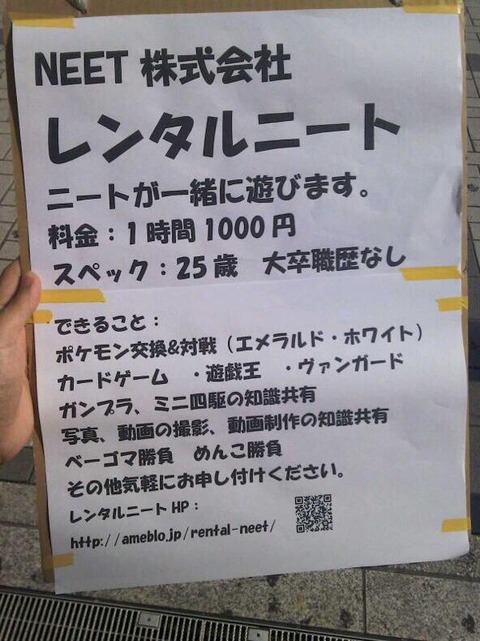 NEET 株式会社
レンタルニート
ニートが一緒に遊びます。
料金：1時間1000円
スペック：25歳　大卒職歴なし
できること：
ポケモン交換&対戦（エメラルド・ホワイト）
カードゲーム　・遊戯王　・ヴァンガード
ガンプラ、ミニ四駆の知識共有
写真、動画の撮影、動画制作の知識共有
ベーゴマ勝負　めんこ勝負
その他気軽にお申し付けください。
レンタルニートHP：
http://ameblo.jp/rental-neet/